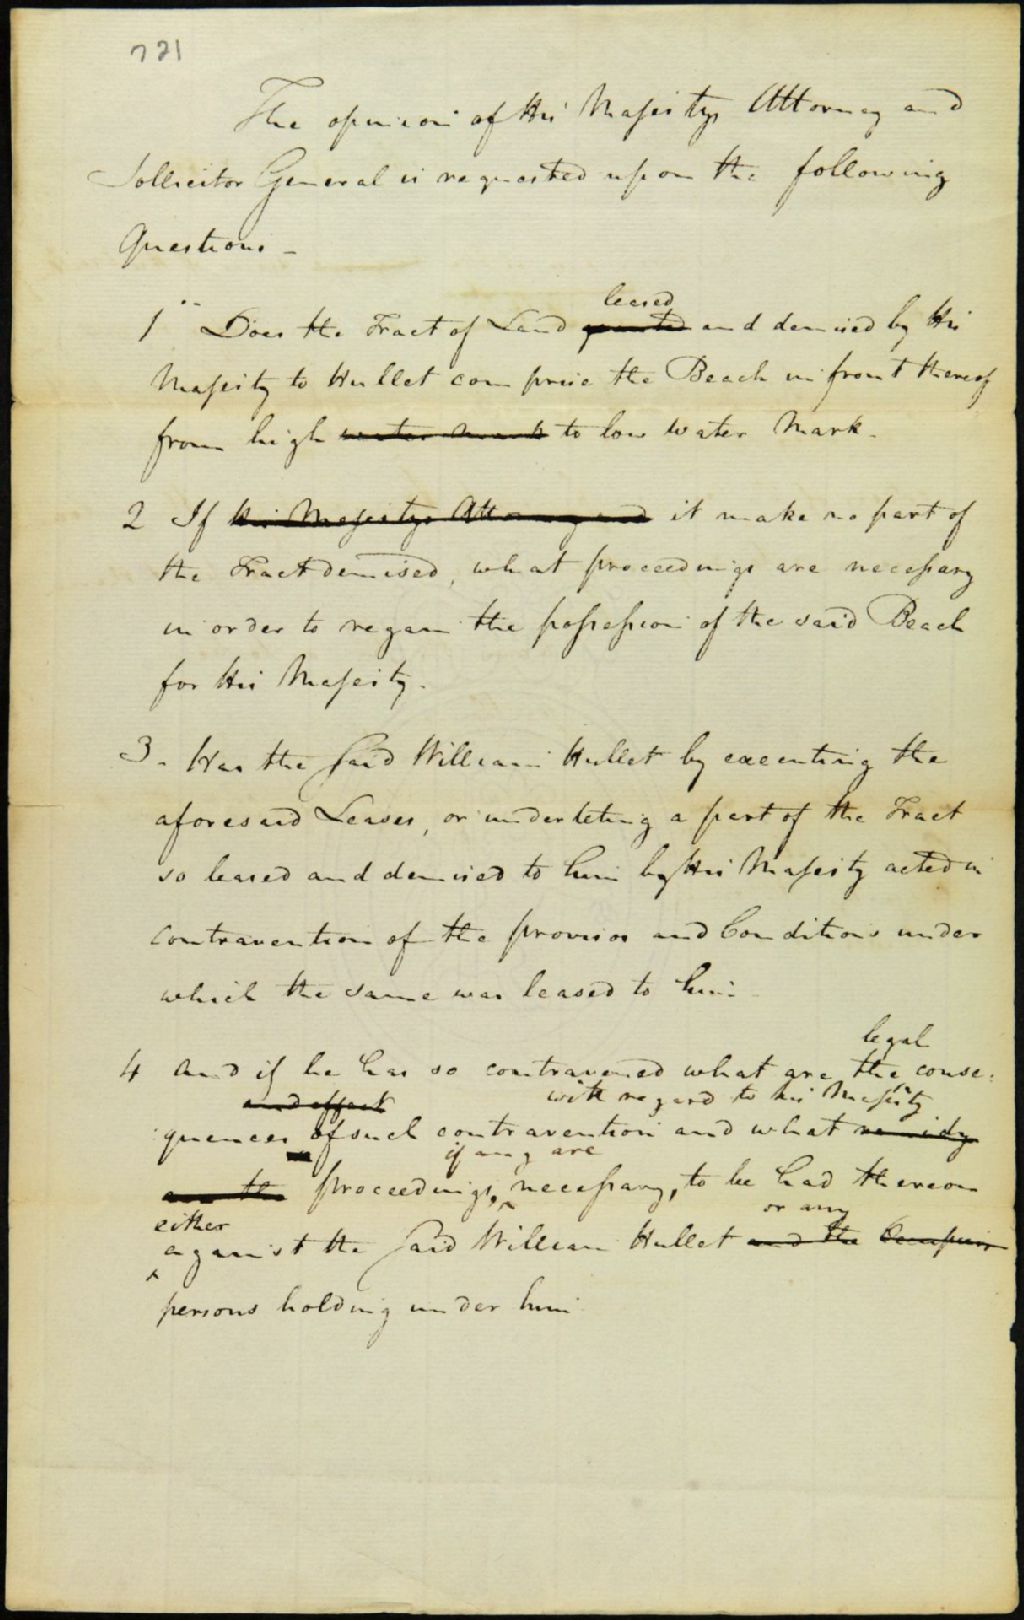 721
The opinion of His Majestys Attorney and
Sollicitor General is requested upon the following
Questions -
leased
1 Does the Tract of Land granted and demised by His
Majesty to Hullet comprise the Beach in front thereof
from high water mark to low water Mark.
2 If His Majestys Attorney and it make no part of
the Tract demised, what proceedings are necessary
in order to regain the possession of the said Beach
for His Majesty.
3 - Has the said William Hullet by executing the
aforesaid Leases, or underleting a part of the Tract
so leased and demised to him by His Majesty acted in
contravention of the provisos and Conditions under
which the same was leased to him -
legal
4 And if he has so contravened what are the conse:
and effect with regard to his Majesty
:quences of such contravention and what remedy
if any are
are the proceedings, necessary, to be had thereon
either or any
against the said William Hullet and the
persons holding under him